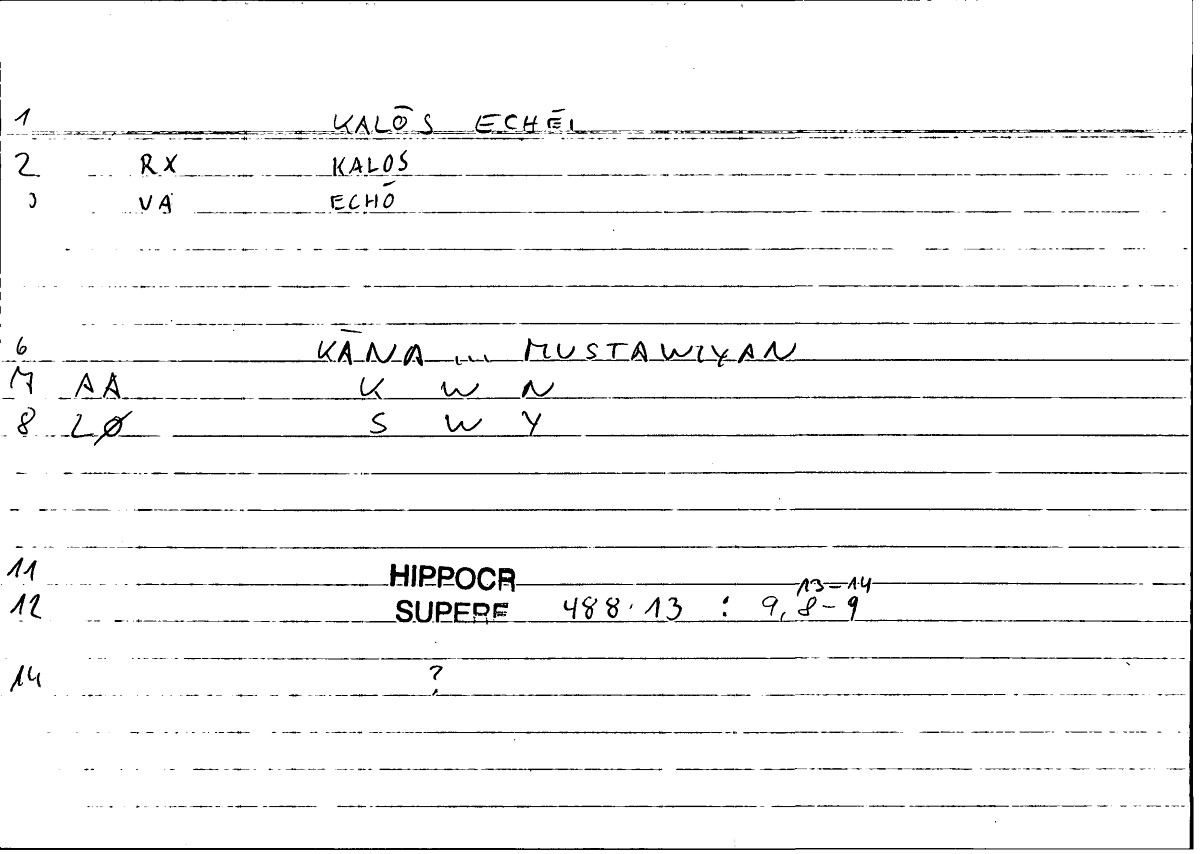 1 KALŌS ECHĒI
2 RX KALOS
3 VA ECHŌ
6 KĀNA ... MUSTAWIYAN
7 AA K W N
8 LØ S W Y
11 HIPPOCR
13-14
12 SUPERF 488.13 : 9, 8-9
14 ?